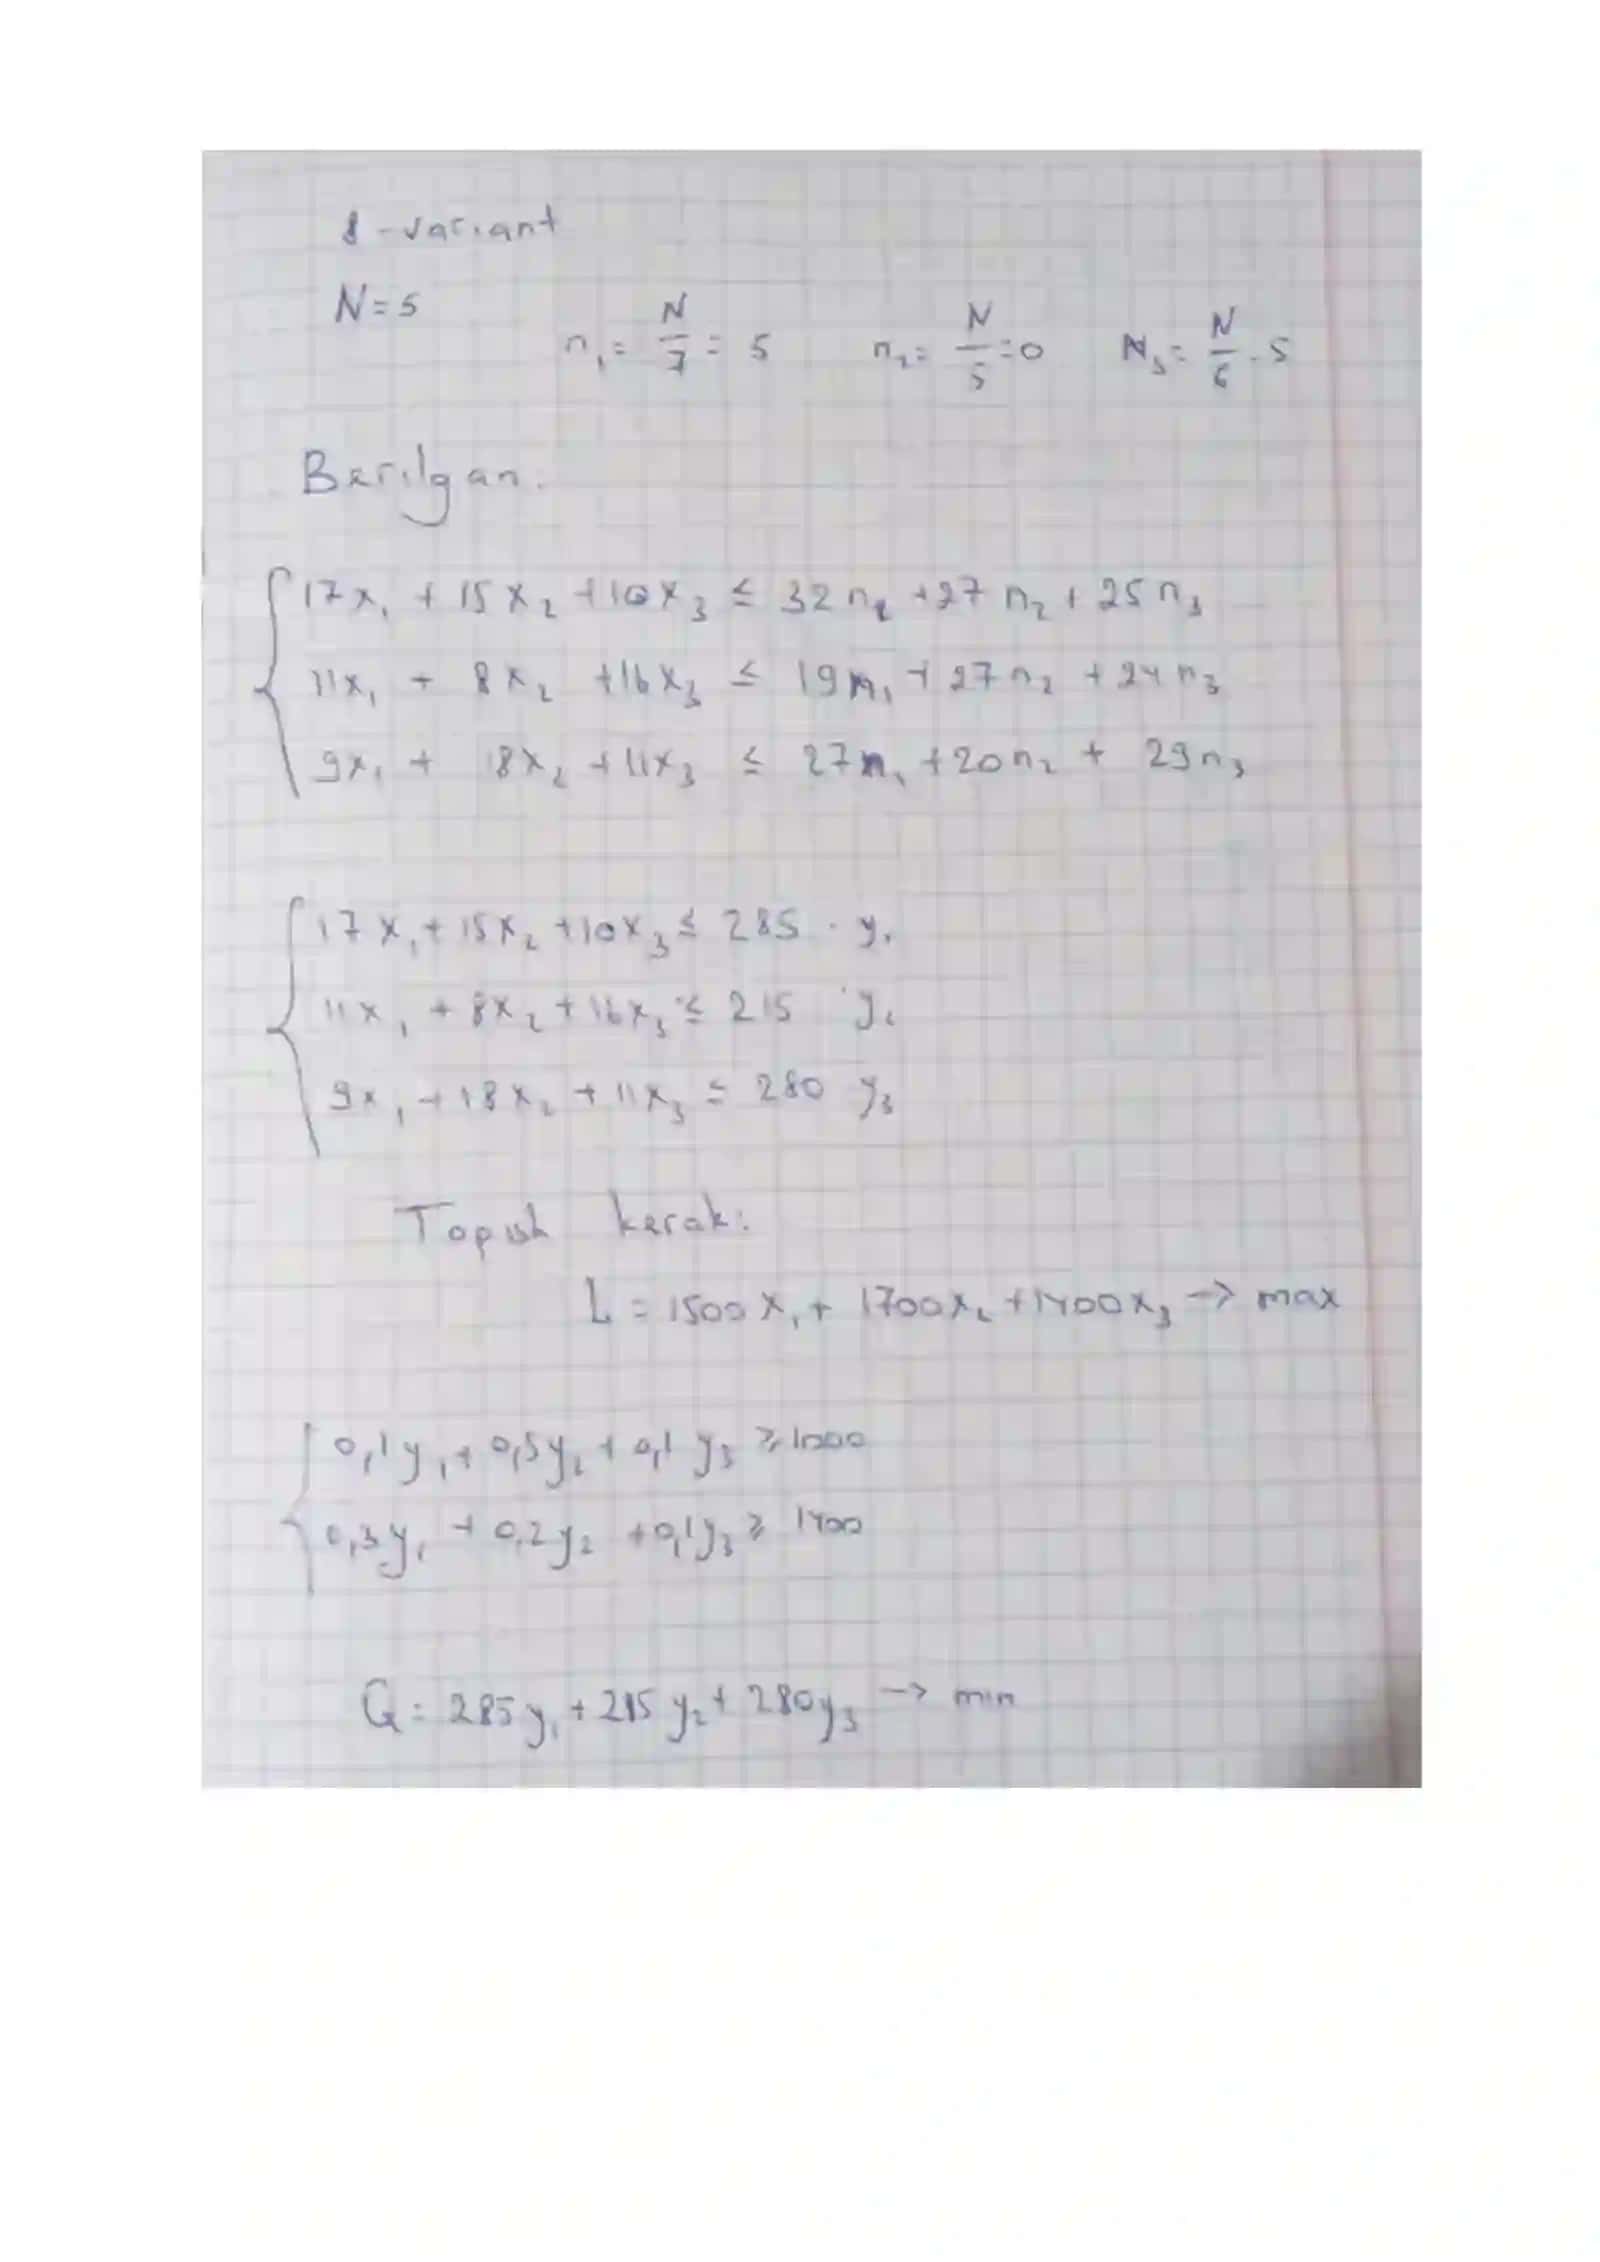 8-variant
N=5
n₁= N/7 = 5 n₂= N/5 =0 N₃= N/6 - 5
Berilgan.
17x₁ + 15x₂ + 10x₃ ≤ 32n₂ + 27n₂ + 25n₃
11x₁ + 8x₂ + 16x₃ ≤ 19n₁ + 27n₂ + 24n₃
9x₁ + 18x₂ + 11x₃ ≤ 27n₁ + 20n₂ + 29n₃
17x₁ + 15x₂ + 10x₃ ≤ 285 · y₁
11x₁ + 8x₂ + 16x₃ ≤ 215 · y₂
9x₁ + 18x₂ + 11x₃ ≤ 280 y₃
Topish kerak:
L = 1500x₁ + 1700x₂ + 1400x₃ → max
0,1y₁ + 0,5y₂ + 0,1y₃ ≥ 1000
0,3y₁ + 0,2y₂ + 0,1y₃ ≥ 1400
G = 285y₁ + 215y₂ + 280y₃ → min